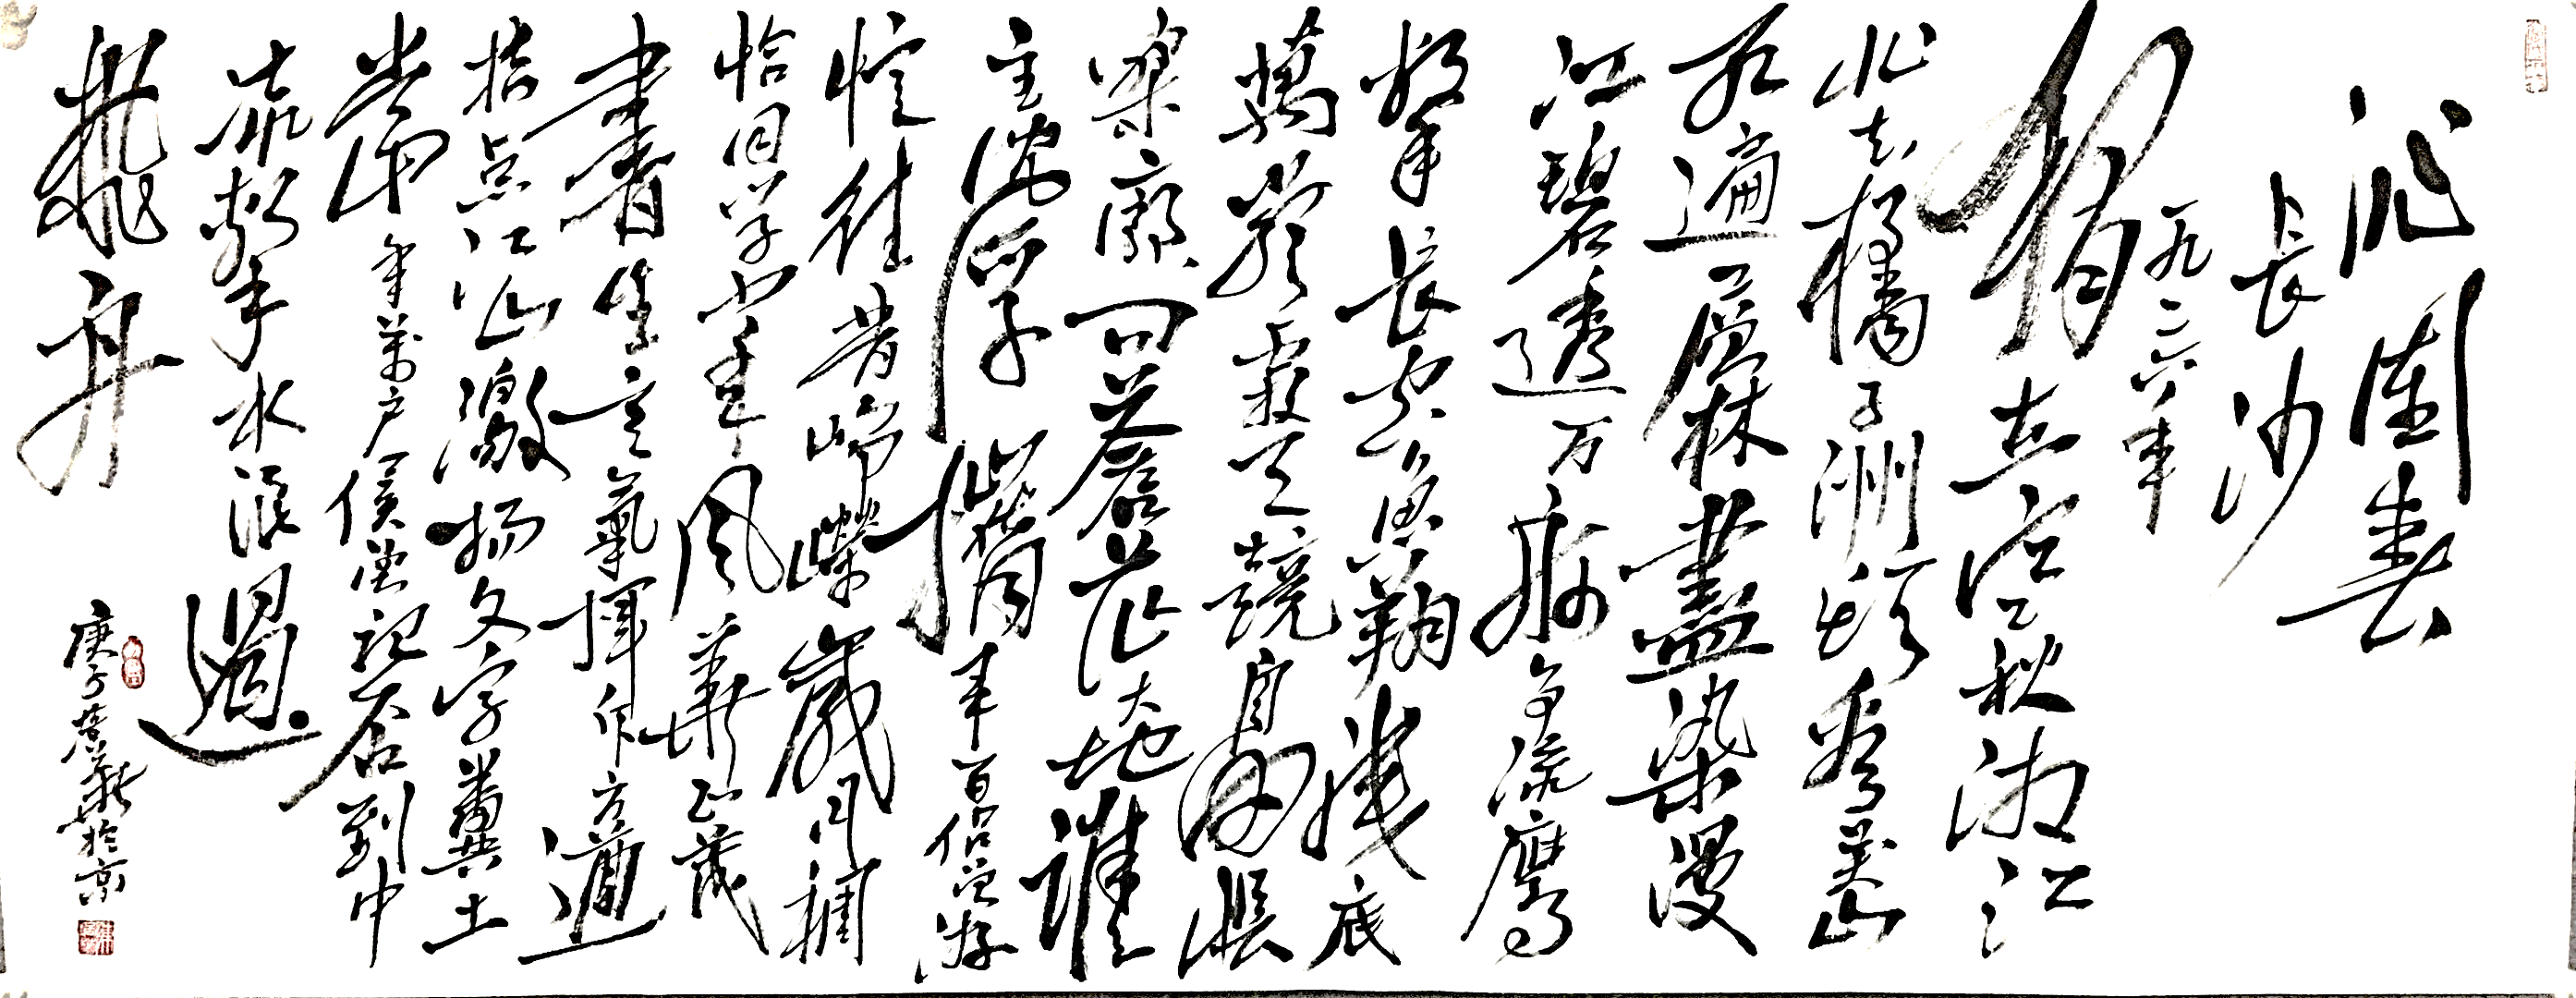 沁園春
长沙
一九二六年
獨立寒秋湘江
北去橘子洲頭看萬山
紅遍层林盡染漫
江碧透万舸争流鹰
擊長空魚翔淺底
萬類霜天競自由悵
寥廓问蒼茫大地誰
主沉浮攜来百侣曾游
憶往昔峥嶸歲月稠
恰同学少年风華正茂
書生意氣揮斥方遒
指点江山激扬文字糞土
當年萬户侯曾記否到中
流擊水浪遏
飛舟
庚子於京